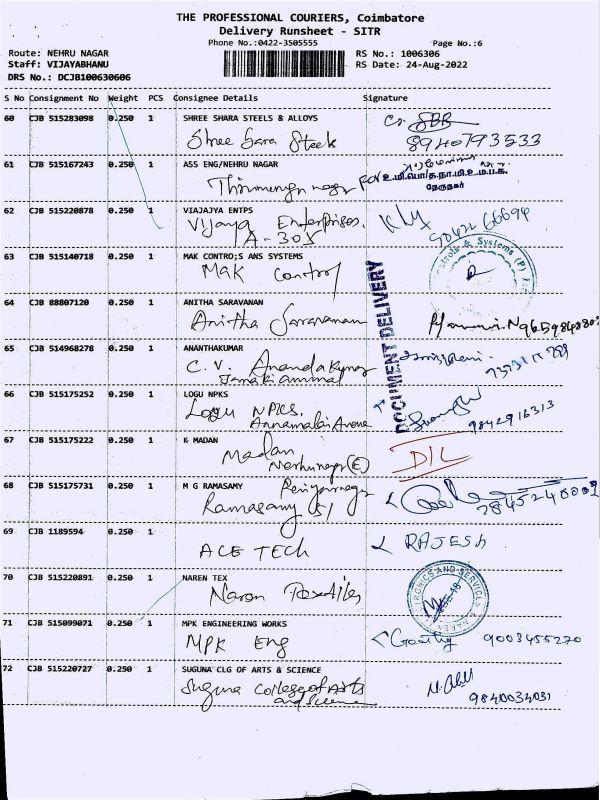 THE PROFESSIONAL COURIERS, Coimbatore
Delivery Runsheet - SITR
Phone No.:0422-3505555
Page No.:6
Route: NEHRU NAGAR
RS No.: 1006306
Staff: VIJAYABHANU
RS Date: 24-Aug-2022
DRS No.: DCJB100630606
S No Consignment No Weight PCS Consignee Details Signature
60 CJB 515283098 0.250 1 SHREE SHARA STEELS & ALLOYS
Shree Sara Steels
8940793533
61 CJB 515167243 0.250 1 ASS ENG/NEHRU NAGAR
நேருநகர்
62 CJB 515220878 0.250 1 VIAJAJYA ENTPS
Vijaya Enterprises.
A-305
63 CJB 515140718 0.250 1 MAK CONTRO;S ANS SYSTEMS
Mak Control
& Systems (P)
DOCUMENT DELIVERY
64 CJB 88807120 0.250 1 ANITHA SARAVANAN
Anitha Saravanan
65 CJB 514968278 0.250 1 ANANTHAKUMAR
C. V. Anandakumar
Janakiammal
66 CJB 515175252 0.250 1 LOGU NPKS
Logu NPKS.
Annamalai Avenue
9842916313
67 CJB 515175222 0.250 1 K MADAN
Madan
Nehrunagar (E)
D/L
68 CJB 515175731 0.250 1 M G RAMASAMY
Periyarnagar
Ramasamy 51
69 CJB 1189594 0.250 1
ACE TECH
RAJESH
70 CJB 515220891 0.250 1 NAREN TEX
Naren Textiles
71 CJB 515099071 0.250 1 MPK ENGINEERING WORKS
MPK Eng
9003455270
72 CJB 515220727 0.250 1 SUGUNA CLG OF ARTS & SCIENCE
Suguna College of Arts
and Science
9840034031